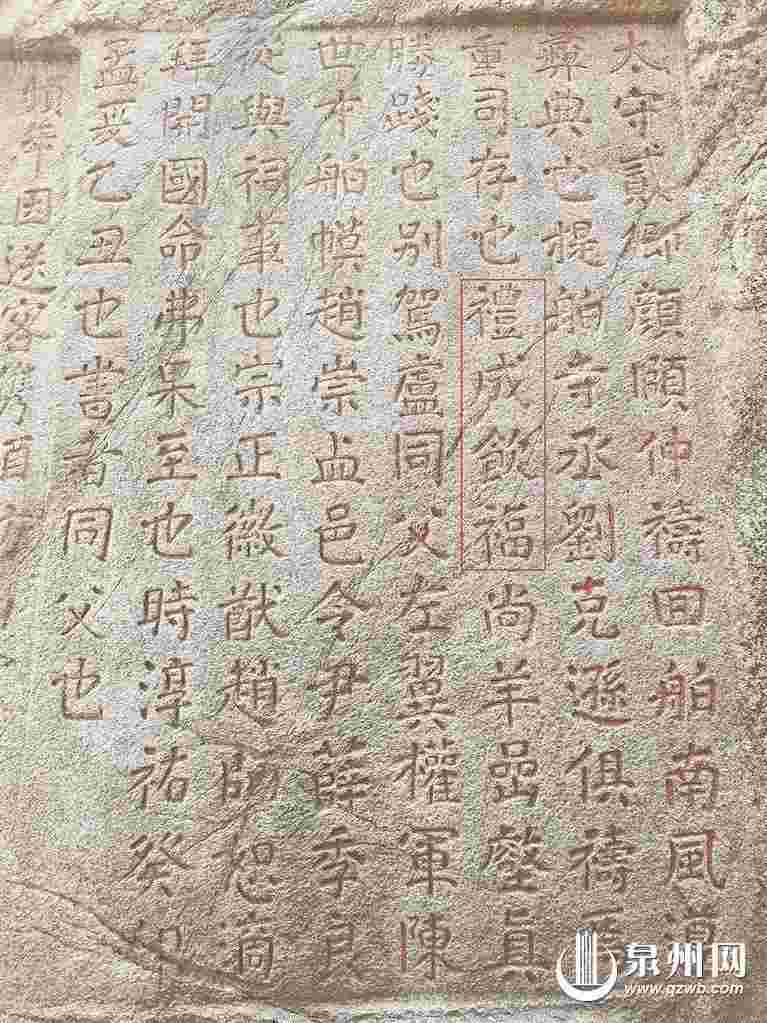 太守貳卿顏頤仲禱回舶南風遵
彝典也提舶寺丞劉克遜俱禱焉
重司存也禮成飲福尚羊嵒壑真
勝踐也別駕盧同父左翼權軍陳
世才舶幙趙崇盀邑令尹薛季良
從與祠事也宗正徽猷趙師恕適
拜開國命弗果至也時淳祐癸卯
孟冬乙丑也書者同父也
年因送客酒
泉州网
www.qzwb.com